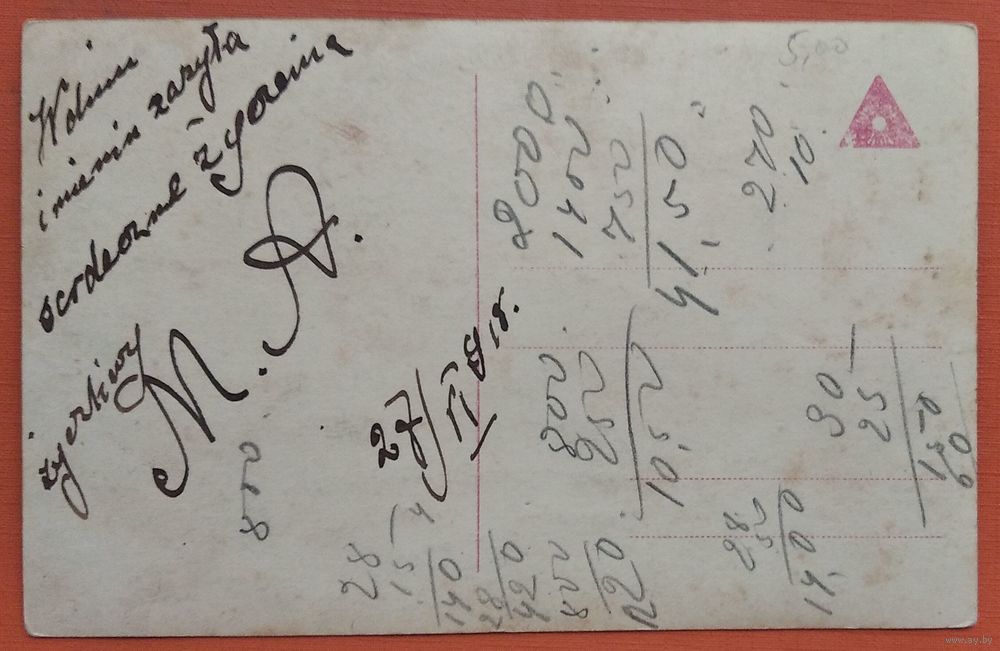 W dniu
imienin zasyła
serdeczne życzenia
życzliwy
M. A.
27/II 918.
5,00
2000
1400
750
41.50
270
10.
800
250
10.50
90
25
1350
60
28
50
14.00
800
28
15
140
28
420
800